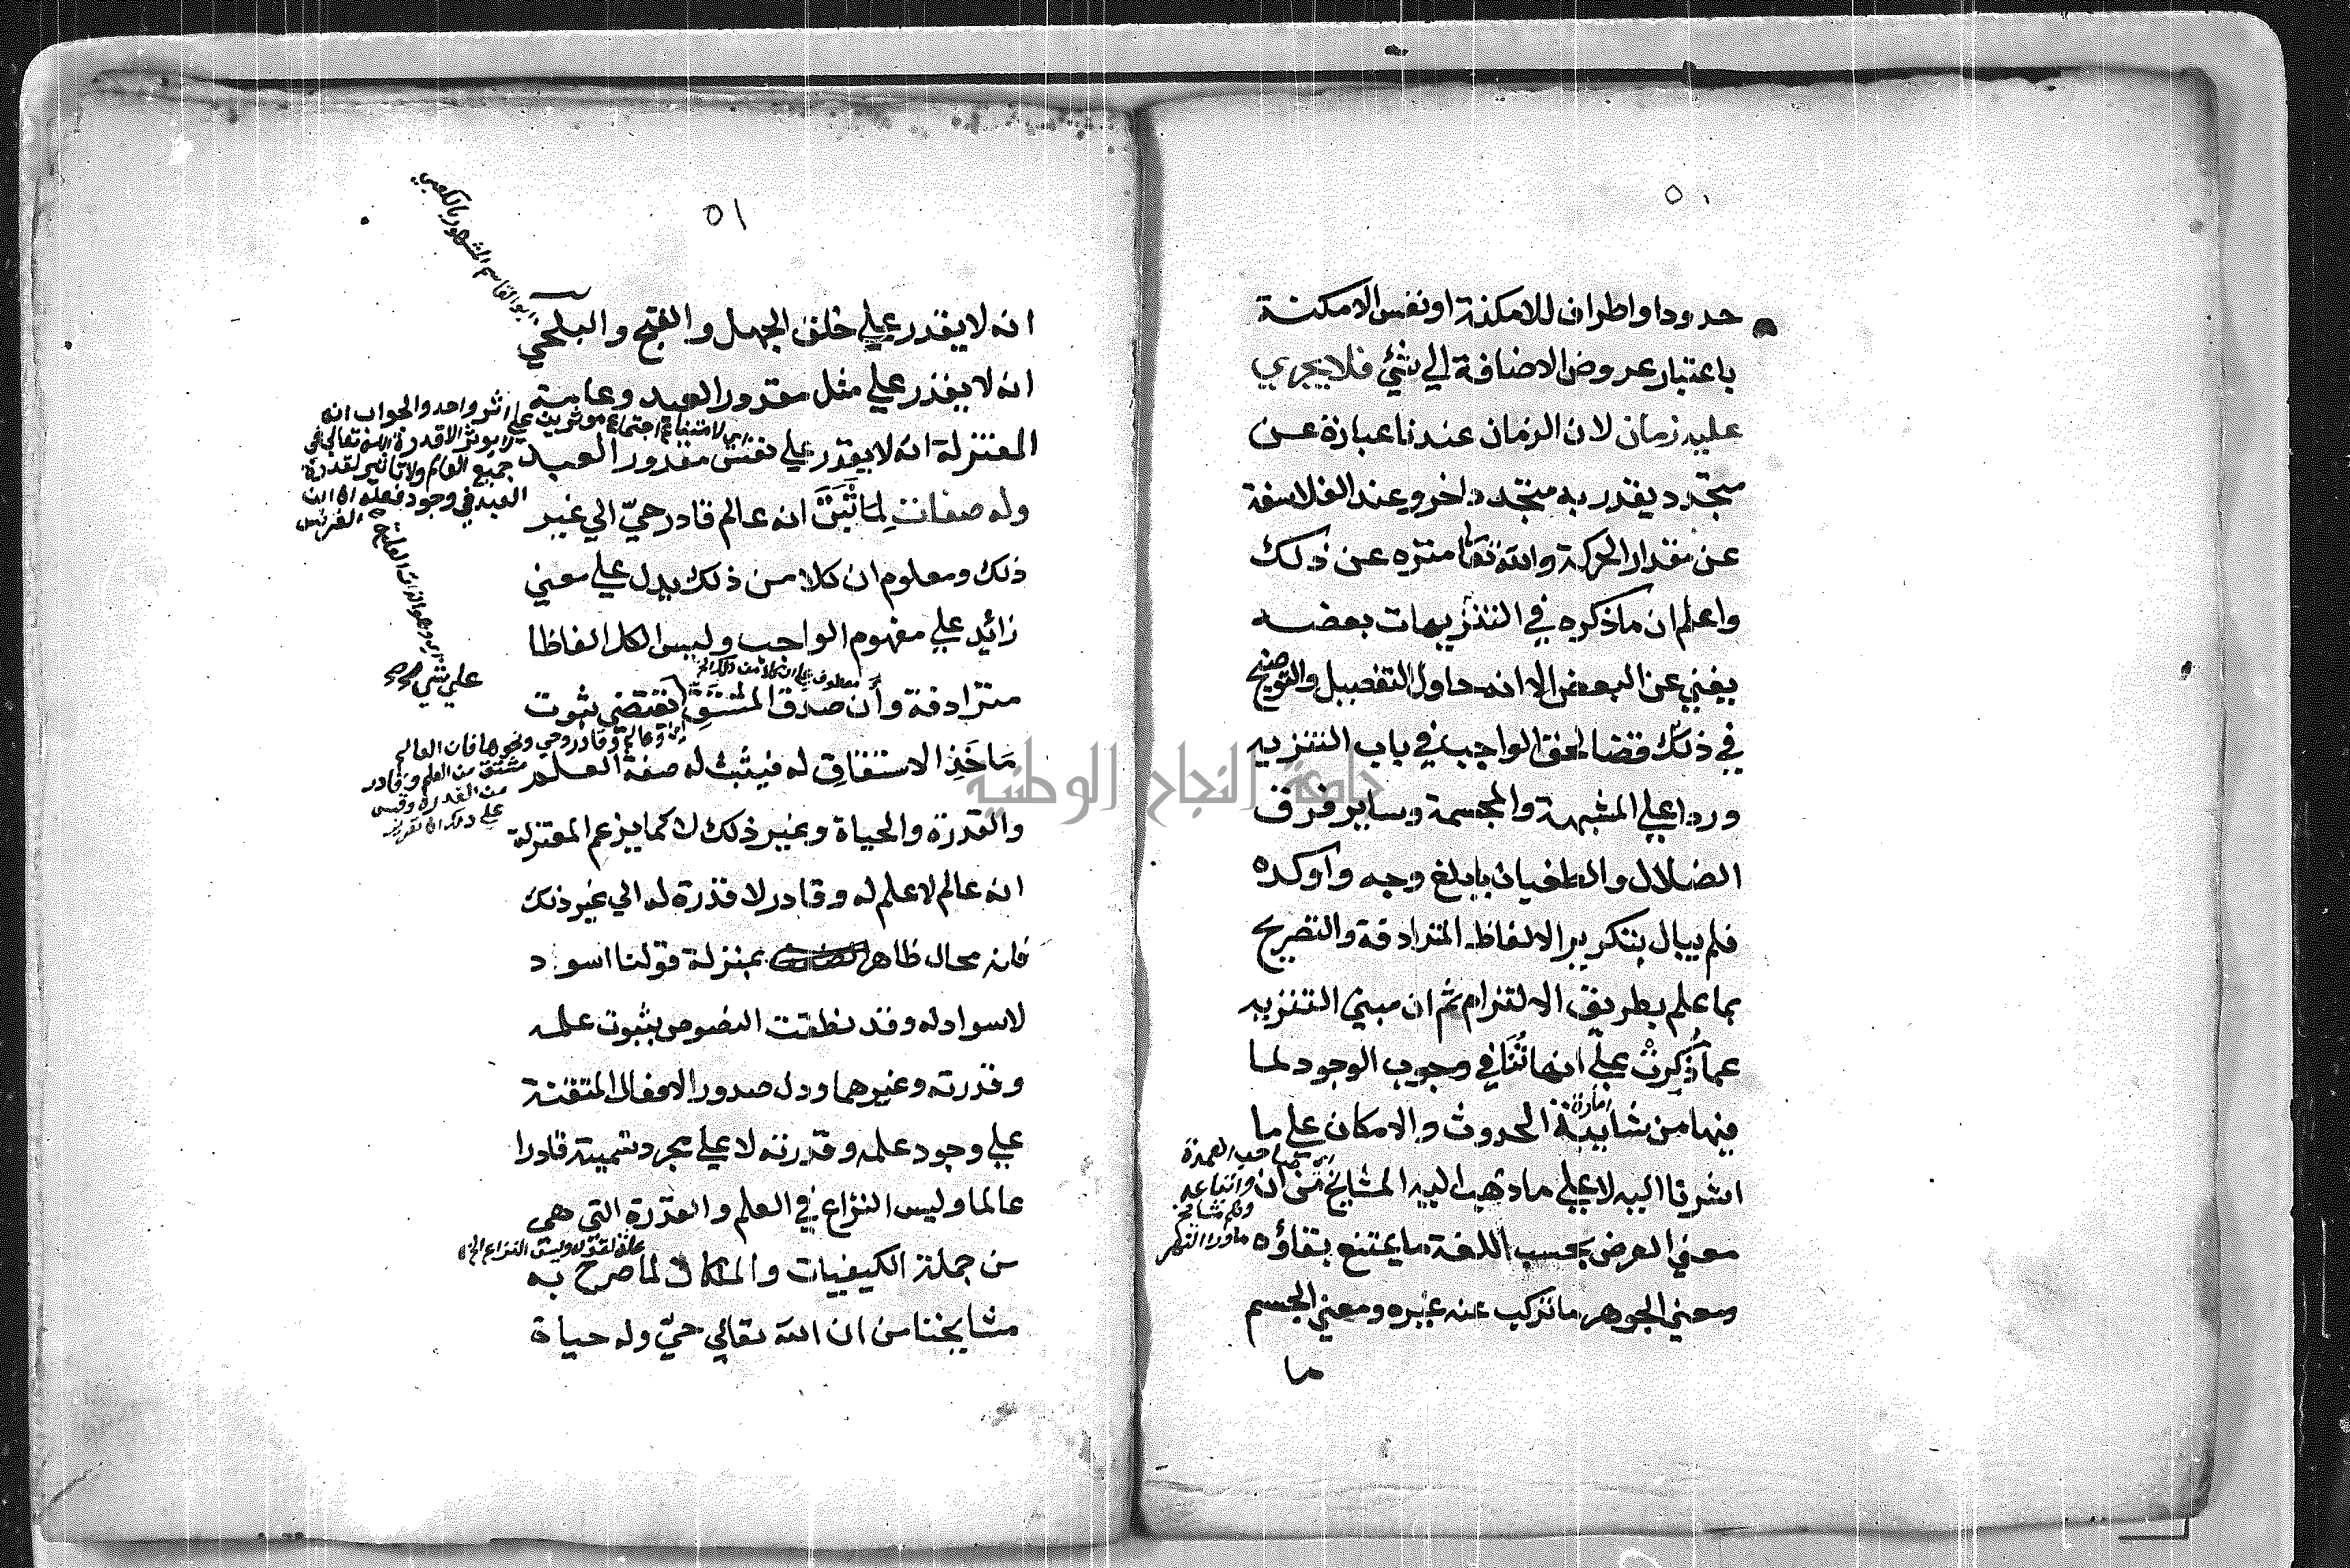 ٥٠
حدودا واطراف للامكنة او نفس الامكنة
باعتبار عروض الاضافة الي شئ فلا يجري
عليه زمان لان الزمان عندنا عبارة عن
متجدد يقدر به متجدد اخر وعند الفلاسفة
عن مقدار الحركة والله تعا منزه عن ذلك
واعلم ان ما ذكره في التنزيهات بعضه
يغني عن البعض الا انه حاول التفصيل والتوضيح
في ذلك قضا لحق الواجب في باب التنزيه
وردا علي المشبهة والمجسمة وساير فرق
الضلال والطغيان بابلغ وجه واوكده
فلم يبال بتكرير الالفاظ المترادفة والتصريح
بما علم بطريق الالتزام ثم ان مبني التنزيه
عما ذُكِرتْ علي انها تُنَافي وجوب الوجود لما
فيها من شايبة الحدوث والامكان علي ما
امارة
اشرنا اليه لا علي ما ذهب اليه المشايخ من ان
صاحب العمدة
واتباعه
وهم مشايخ
ماورا النهر
معني العرض بحسب اللغة ما يمتنع بقاؤه
ومعني الجوهر ما تركب عنه غيره ومعني الجسم
ما
٥١
ابو القاسم المشهور بالكعبي
انه لا يقدر علي خلق الجهل والقبح والبلخي
انه لا يقدر علي مثل مقدور العبد وعامة
المعتزلة انه لا يقدر علي نفس مقدور العبد
اي لامتناع اجتماع موثرين علي اثر واحد والجواب انه
لا يوثر الا قدرة الله تعالي في
جميع العالم ولا تاثير لقدرة
العبد في وجود فعله
وله صفات لِمَا ثَبَتَ انه عالم قادر حيّ الي غير
ذلك ومعلوم ان كلا من ذلك يدل علي معني
زائد علي مفهوم الواجب وليس الكل الفاظا
علي شي
مترادفة وأن صدق المشتق يقتضي ثبوت
مَاخَذِ الاشتقاقِ له فيثبت له صفة العلم
وعالم وقادر وحي ونحوها فان العالم
مشتق من العلم وقادر
من القدرة وقس
علي ذلك
والقدرة والحياة وغير ذلك لا كما يزعم المعتزلة
انه عالم لا علم له وقادر لا قدرة له الي غير ذلك
فانه محال ظاهر بمنزلة قولنا اسود
لا سواد له وقد نطقت النصوص بثبوت علمه
وقدرته وغيرهما ودل صدور الافعال المتقنة
علي وجود علمه وقدرته لا علي مجرد تسميته قادرا
عالما وليس النزاع في العلم والقدرة التي هي
علة لقوله وليس النزاع الخ
من جملة الكيفيات والملكات لما صرح به
مشايخنا من ان الله تعالي حيّ وله حياة
جامعة النجاح الوطنية